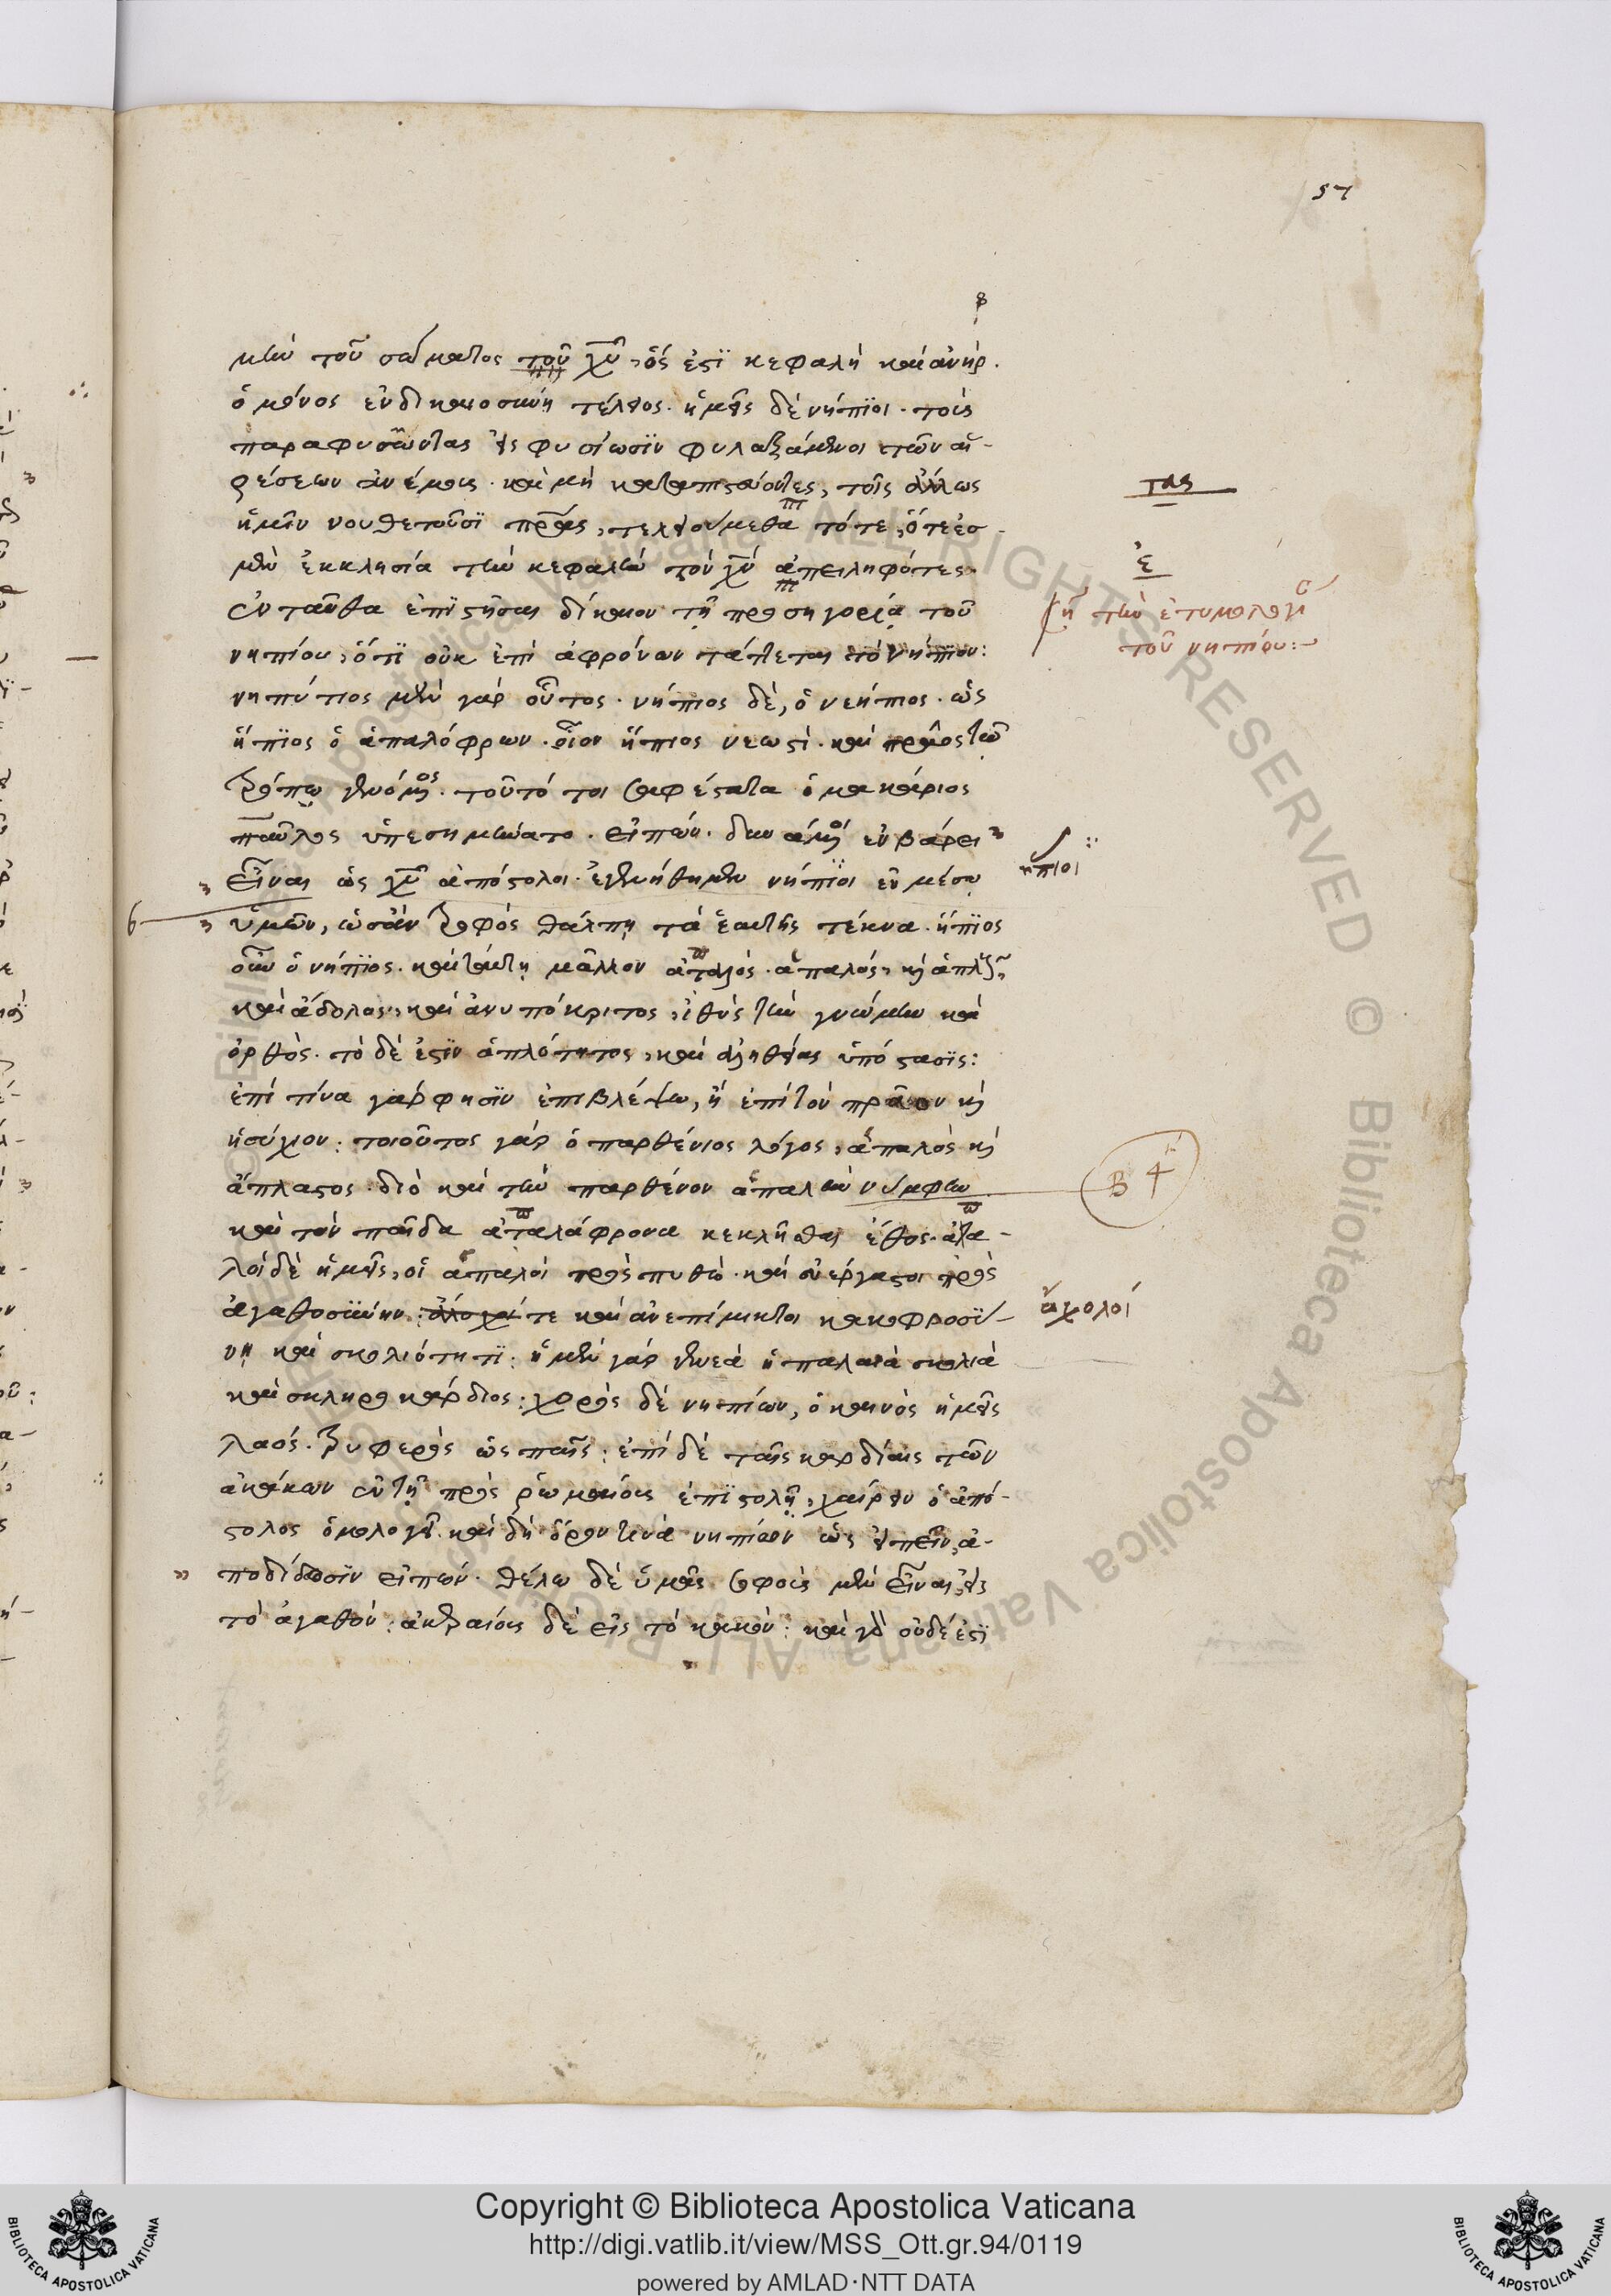 57
μὲν τοῦ σώματος τοῦ χυ, ὅς ἐστὶ κεφαλὴ καὶ ἀνὴρ.
ὁ μόνος ἐν δικαιοσύνη τέλειος. ἡμεῖς δὲ νήπιοι. τοὺς
παραφυσῶντας εἰς φυσίωσιν φυλαξάμενοι τῶν αἱ-
ρέσεων ἀνέμους. καὶ μὴ καταπιστεύοντες, τοῖς ἄλλως
τας
ἡμῖν νουθετοῦσι πρας, τελειούμεθα τότε, ὅτε ἐσ-
μὲν ἐκκλησία τὴν κεφαλὴν τὸν χν ἀπειληφότες.
ε
ἐνταῦθα ἐπιστῆσαι δίκαιον τῆ προσηγορία τοῦ
τὴν ἐτυμολογί
νηπίου, ὅτι οὐκ ἐπὶ ἀφρόνων τάττεται τὸ νήπιον:
τοῦ νηπίου:
νηπύτιος μὲν γὰρ οὗτος. νήπιος δὲ, ὁ νεήπιος. ὡς
ἤπιος ὁ ἁπαλόφρων. οἷον ἤπιος νεωστὶ. καὶ πρᾶος τῶ
τρόπω γενόμενος. τοῦτό τοι σαφέστατα ὁ μακάριος
παῦλος ὑπεσημήνατο. εἰπών. δυνάμενοι ἐν βάρει
εἶναι ὡς χυ ἀπόστολοι. ἐγενήθημεν νήπιοι ἐν μέσω
ἤπιοι
ὑμῶν, ὡσὰν τροφὸς θάλπη τὰ ἑαυτῆς τέκνα. ἤπιος
οὖν ὁ νήπιος. καὶ ταύτη μᾶλλον ἀταλός. ἁπαλός, καὶ ἁπλοῦς,
καὶ ἄδολος, καὶ ἀνυπόκριτος, ἰθὺς τὴν γνώμην καὶ
ὀρθὸς. τὸ δέ ἐστιν ἁπλότητος, καὶ ἀληθείας ὑπόστασις:
ἐπὶ τίνα γάρ φησιν ἐπιβλέψω, ἢ ἐπὶ τὸν πρᾶον καὶ
ἡσύχιον: τοιοῦτος γὰρ ὁ παρθένιος λόγος, ἁπαλὸς καὶ
ἄπλαστος. διὸ καὶ τὴν παρθένον ἁπαλὴν νύμφην
Β 4
καὶ τὸν παῖδα ἀταλάφρονα κεκλῆσθαι ἔθος. ἀτα-
λοὶ δὲ ἡμεῖς, οἱ ἁπαλοὶ πρὸς πυθὼ. καὶ εὐέργαστοι πρὸς
ἀγαθοσύνην. τε καὶ ἀνεπίμικτοι κακοφροσύ-
ἄχολοί
νη καὶ σκολιότητι: ἡ μὲν γὰρ γενεὰ ἡ παλαιὰ σκολιὰ
καὶ σκληροκάρδιος: χορὸς δὲ νηπίων, ὁ καινὸς ἡμεῖς
λαός. τρυφερὸς ὡς παῖς: ἐπὶ δὲ ταῖς καρδίαις τῶν
ἀκάκων ἐν τῆ πρὸς ῥωμαίους ἐπιστολῆ, χαίρειν ὁ ἀπό-
στολος ὁμολογεῖ. καὶ δὴ ὅρον τινὰ νηπίων ὡς εἰπεῖν, ἀ-
ποδίδωσιν εἰπών. θέλω δὲ ὑμᾶς σοφοὺς μὲν εἶναι, εἰς
τὸ ἀγαθὸν: ἀκεραίους δὲ εἰς τὸ κακὸν: καὶ γὰρ οὐδέ ἐστὶ
Copyright © Biblioteca Apostolica Vaticana
http://digi.vatlib.it/view/MSS_Ott.gr.94/0119
powered by AMLAD·NTT DATA